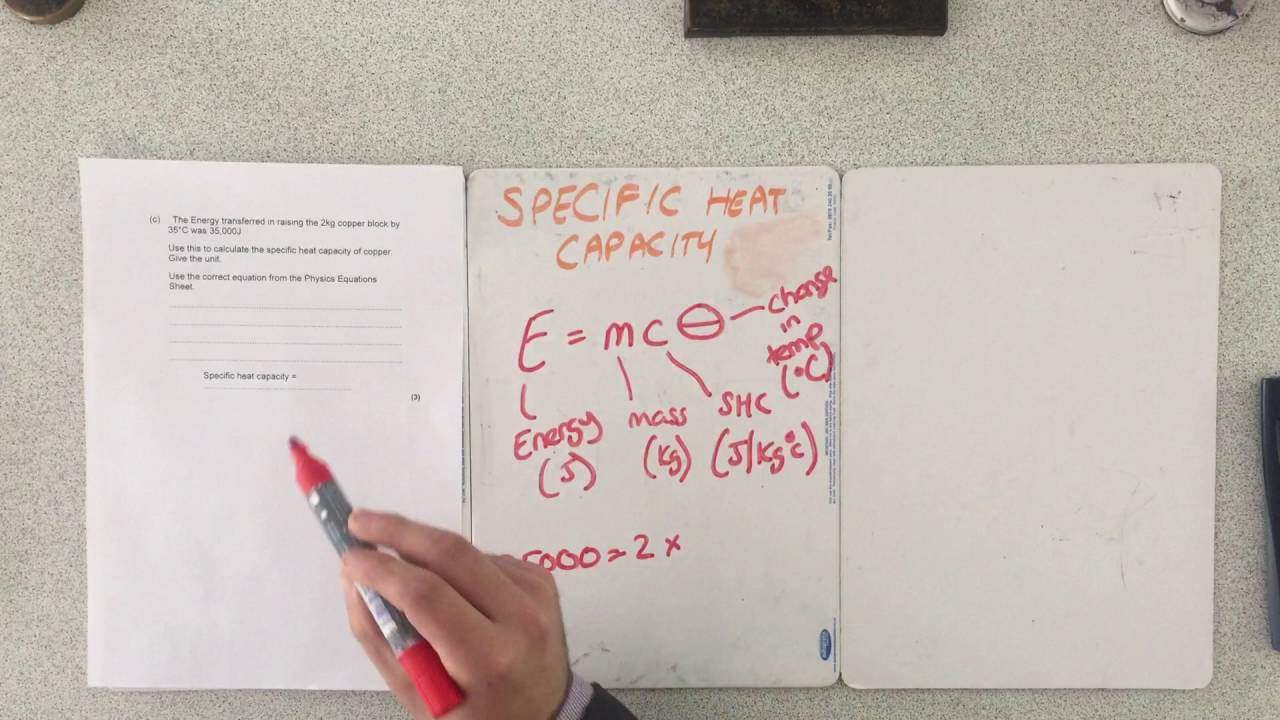 (c) The Energy transferred in raising the 2kg copper block by
35°C was 35,000J.
Use this to calculate the specific heat capacity of copper.
Give the unit.
Use the correct equation from the Physics Equations
Sheet.
Specific heat capacity =
(3)
SPECIFIC HEAT
CAPACITY
E = m c θ
change
in
temp
(°C)
Energy
(J)
mass
(kg)
SHC
(J/kg°c)
5000 = 2 ×